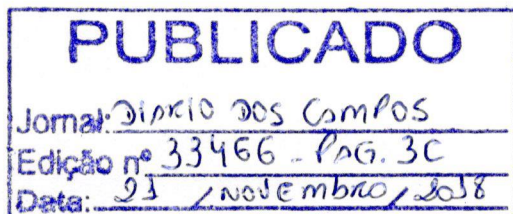 PUBLICADO
Jornal: DIARIO DOS CAMPOS
Edição nº 33466 - PAG. 3C
Data: 23 / NOVEMBRO / 2018